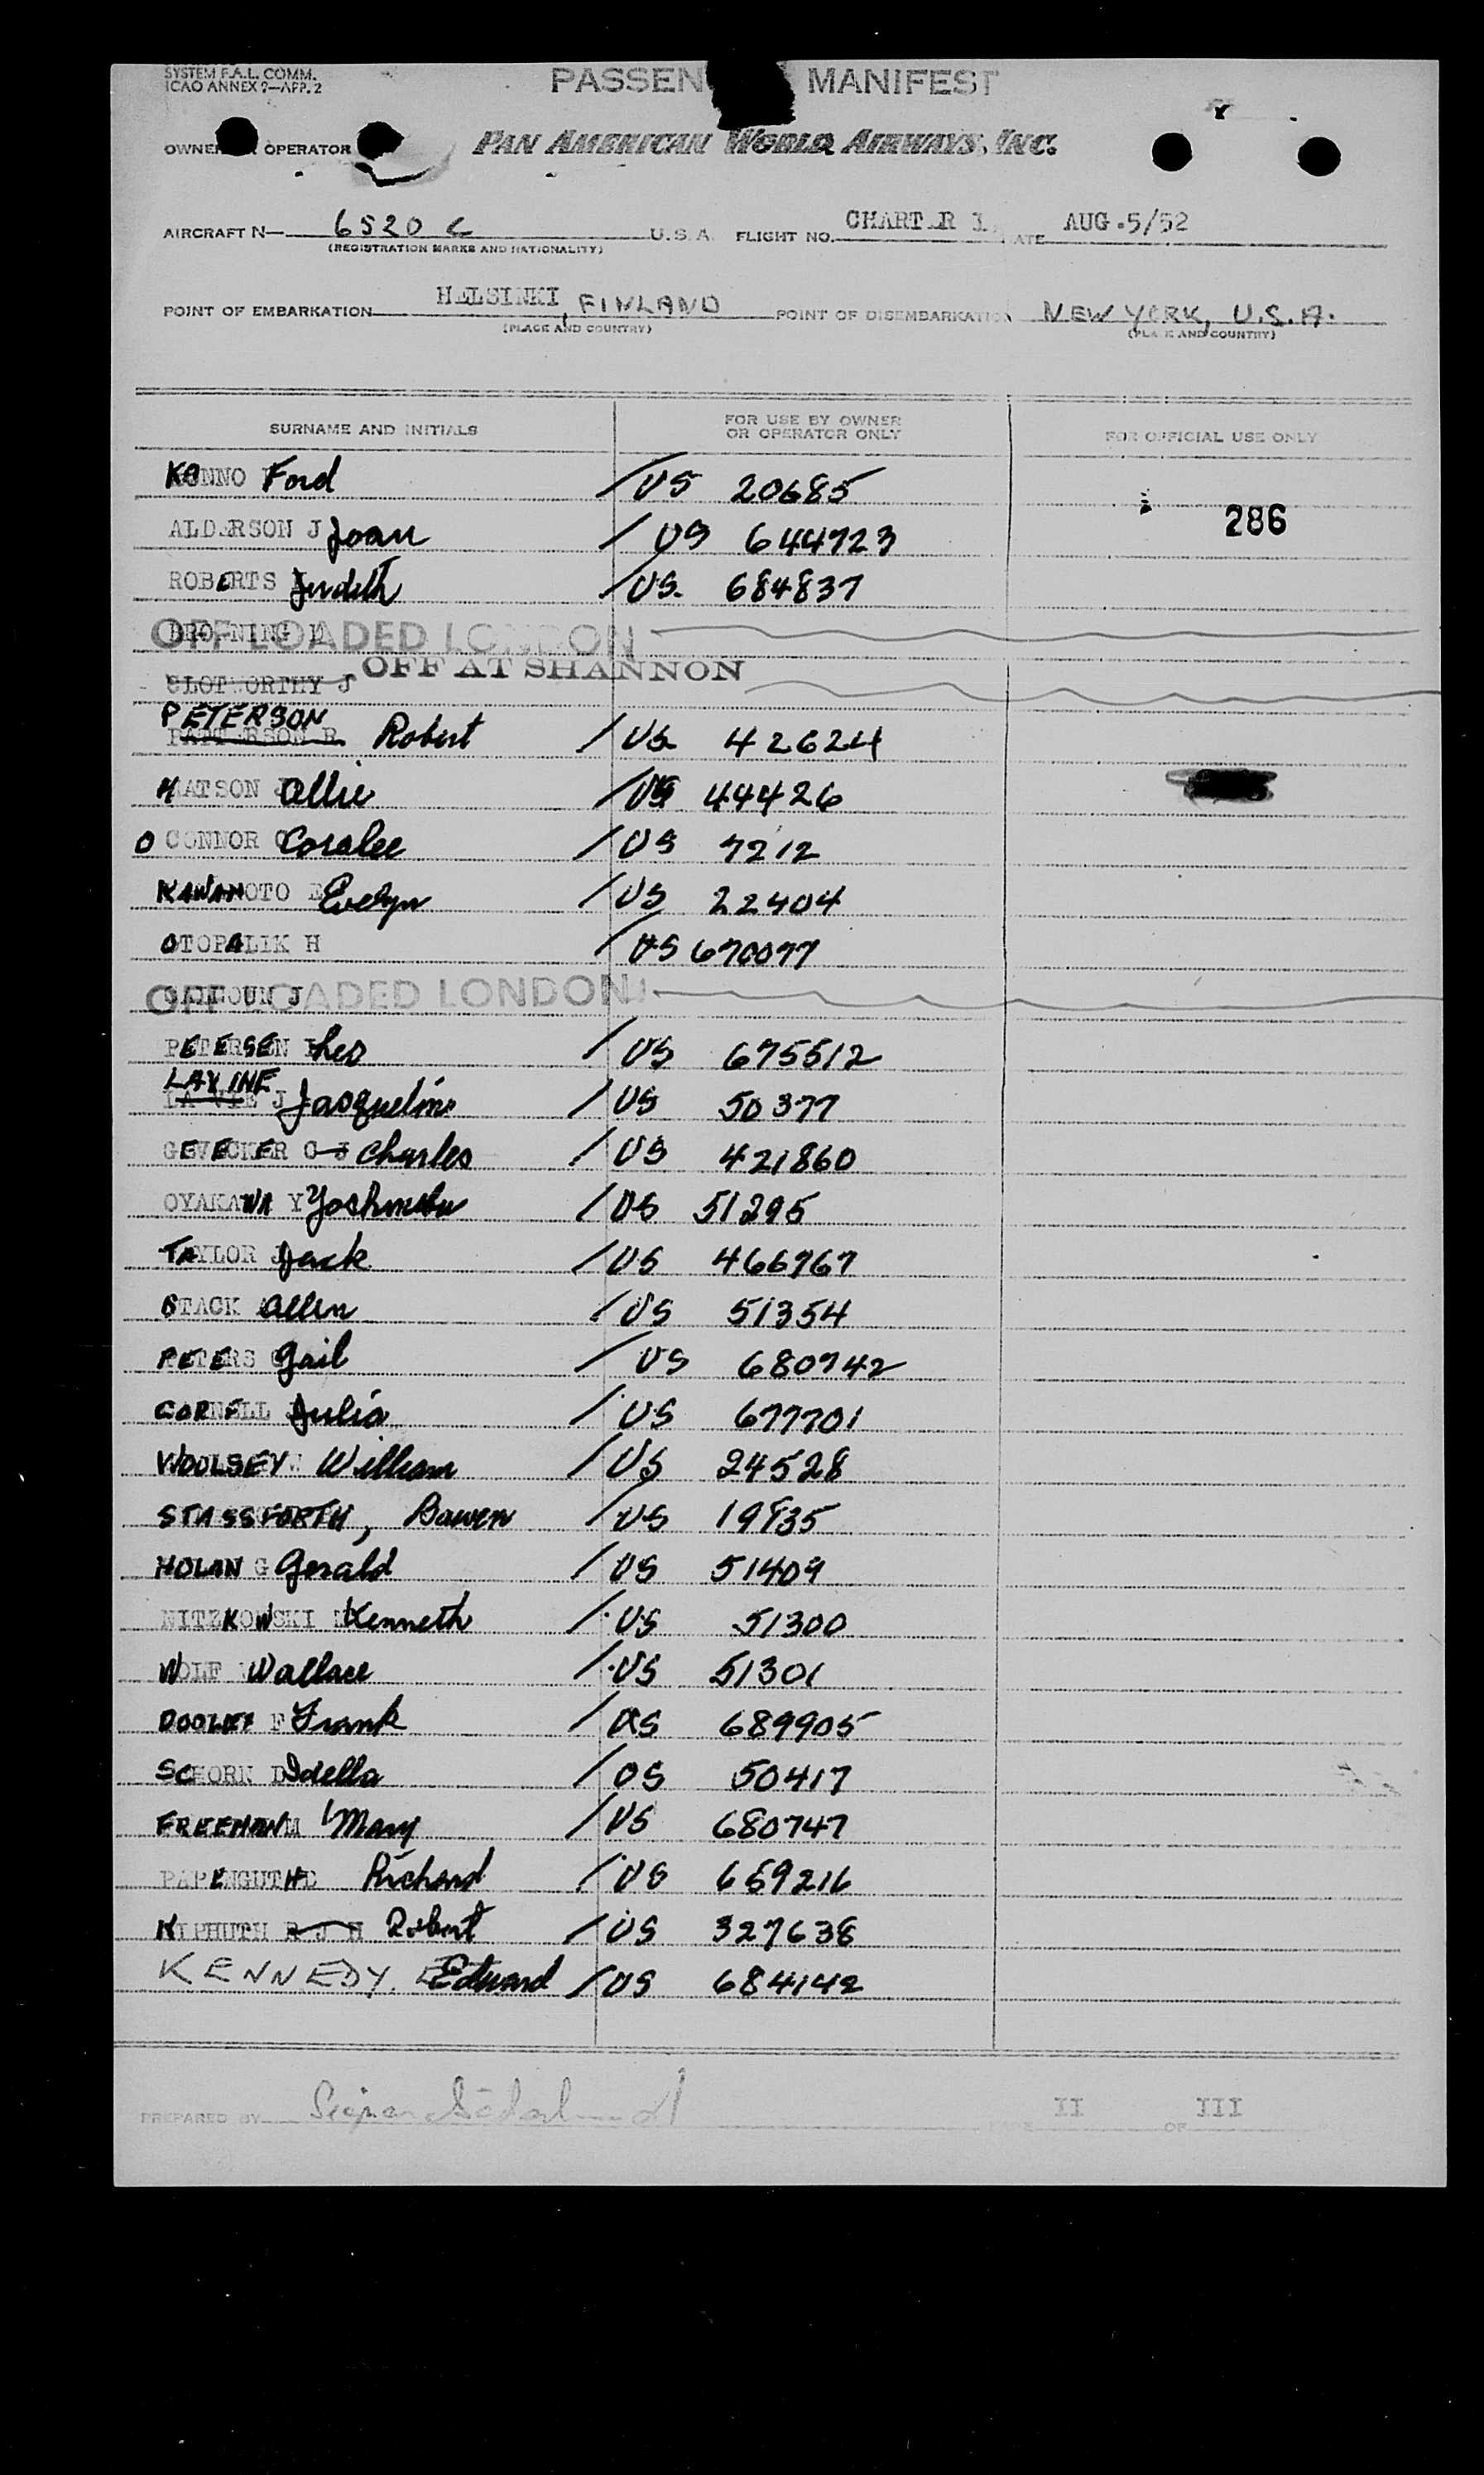 SYSTEM F.A.L. COMM.
ICAO ANNEX 9—APP. 2
PASSEN MANIFEST
OWNER OPERATOR PAN AMERICAN WORLD AIRWAYS, INC.
AIRCRAFT N— 6520 C U.S.A. FLIGHT NO. CHART.R 1 ATE AUG.5/52
(REGISTRATION MARKS AND NATIONALITY)
POINT OF EMBARKATION HELSINKI, FINLAND POINT OF DISEMBARKATION NEW YORK, U.S.A.
(PLACE AND COUNTRY) (PLACE AND COUNTRY)
SURNAME AND INITIALS FOR USE BY OWNER OR OPERATOR ONLY FOR OFFICIAL USE ONLY
KONNO Ford / US 20685
286
ALDERSON J Joan / US 644723
ROBERTS Judith / US. 684837
BROWNING D OFF LOADED LONDON
CLOTWORTHY J OFF AT SHANNON
PETERSON
PATTERSON R Robert / US 42624
MATSON Ollie / US 44426
O CONNOR C Coralee / US 7212
KAWAMOTO E Evelyn / US 22404
OTOPALIK H / US 670077
CALHOUN J OFF LOADED LONDON
PETERSEN Leo / US 675512
LAVINE
LA VIE J Jacqueline / US 50377
GEVECKER C J Charles / US 421860
OYAKAWA Y Yoshinobu / US 51295
TAYLOR J Jack / US 466767
STACK Allen / US 51354
PETERS Gail / US 680742
CORNELL Julia / US 677701
WOOLSEY William / US 24528
STASSFORTH, Bowen / US 19835
HOLAN G Gerald / US 51409
NITZKOWSKI Kenneth / US 51300
WOLF Wallace / US 51301
DOOLEY F Frank / US 689905
SCHORR D Idella / US 50417
FREEMAN Mary / US 680747
PAPENGUTH Richard / US 659216
KIPHUTH R J H Robert / US 327638
KENNEDY. Edward / US 684142
PREPARED BY PAGE II OF III